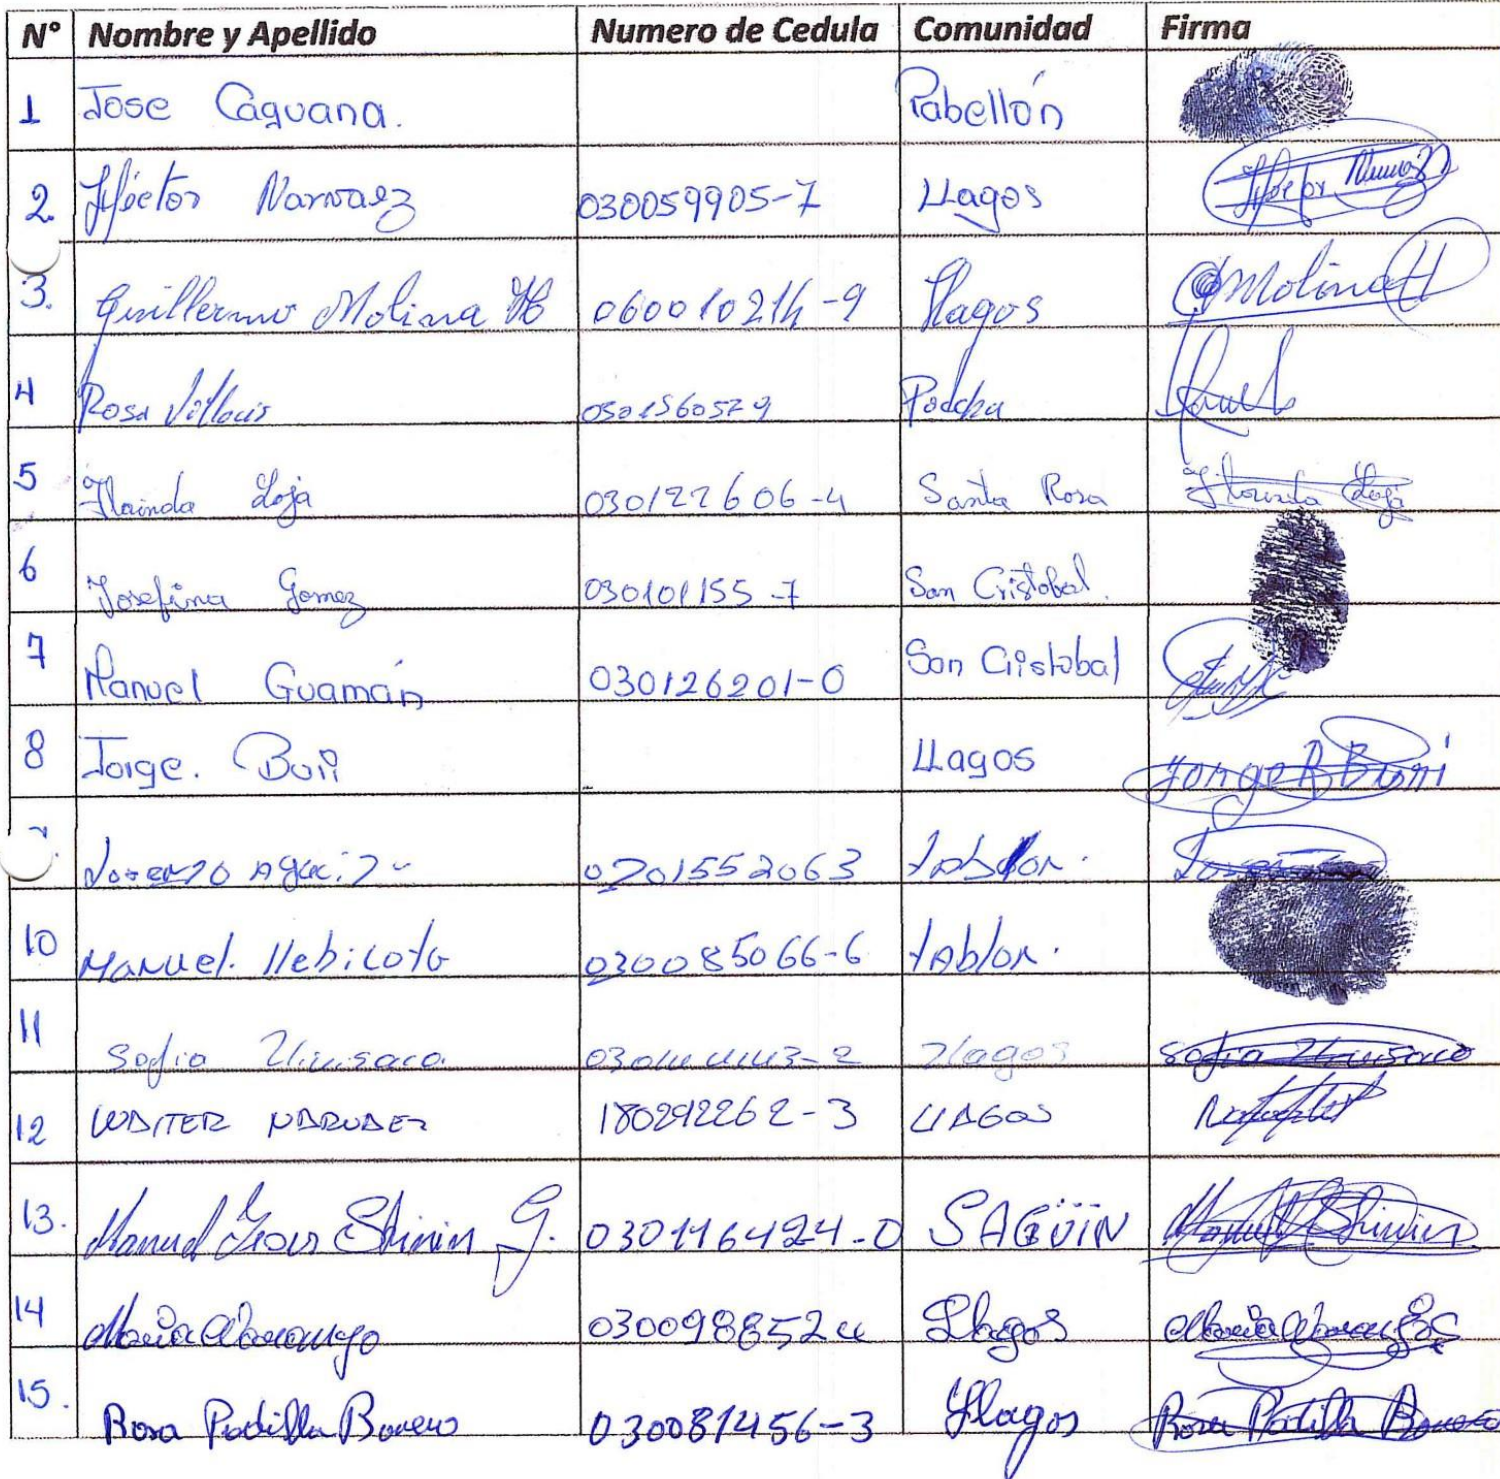 N° Nombre y Apellido Numero de Cedula Comunidad Firma
1 Jose Caguana. Pabellón
2. Héctor Narvaez 030059905-7 LLagos Héctor Narvaez
3. Guillermo Molina H 060010214-9 Llagos GMolina H
4 Rosa Villacis Podcha
5 Florinda Loja 030122606-4 Santa Rosa Florinda Loja
6 Josefina Gomez 030101155-7 San Cristobal.
7 Manuel Guamán 030126201-0 San Cristobal
8 Jorge. Buñi LLagos Jorge R Buñi
Lorenzo 0201552063
10 Manuel. 030085066-6 tablon.
11 Sofia Llagos Sofia
12 WALTER NARVAEZ 180292262-3 LLAGOS
13. Manuel Shinin G. 030116424-0 SAGÜIN Manuel Shinin
14 Maria 030098852 Llagos Maria
15. Rosa Padilla Bonero 030081456-3 Llagos Rosa Padilla Bonero